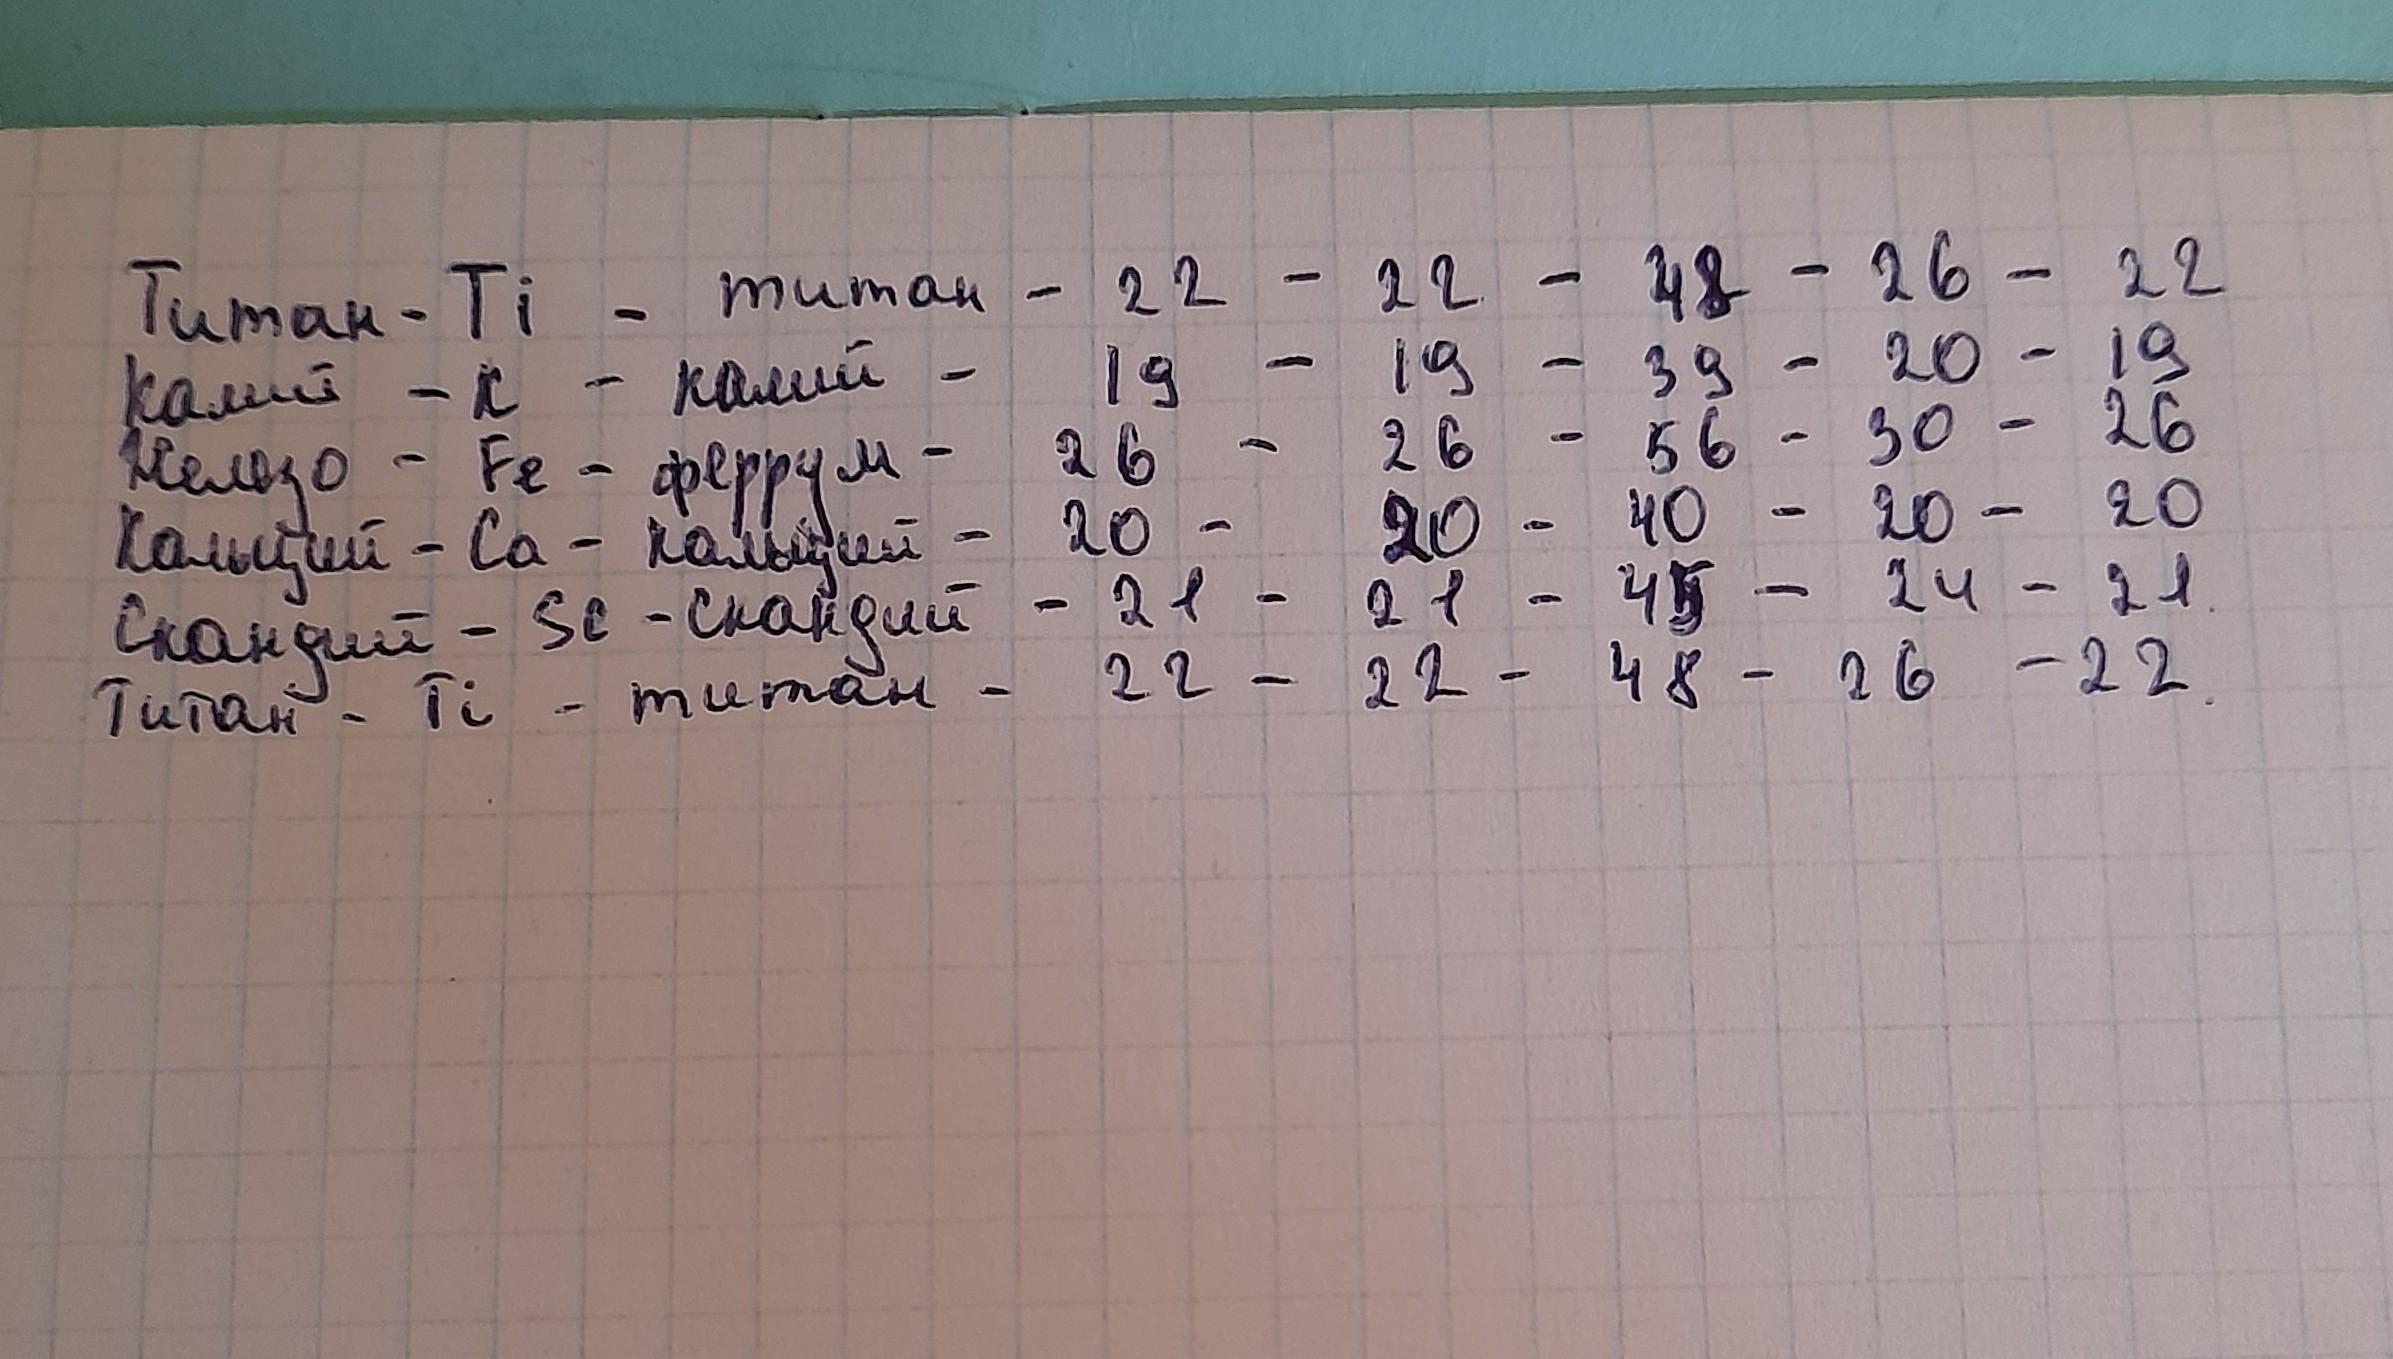 Титан - Ti - титан - 22 - 22 - 48 - 26 - 22
Калий - K - калий - 19 - 19 - 39 - 20 - 19
Железо - Fe - феррум - 26 - 26 - 56 - 30 - 26
Кальций - Ca - кальций - 20 - 20 - 40 - 20 - 20
Скандий - Sc - скандий - 21 - 21 - 45 - 24 - 21.
Титан - Ti - титан - 22 - 22 - 48 - 26 - 22.